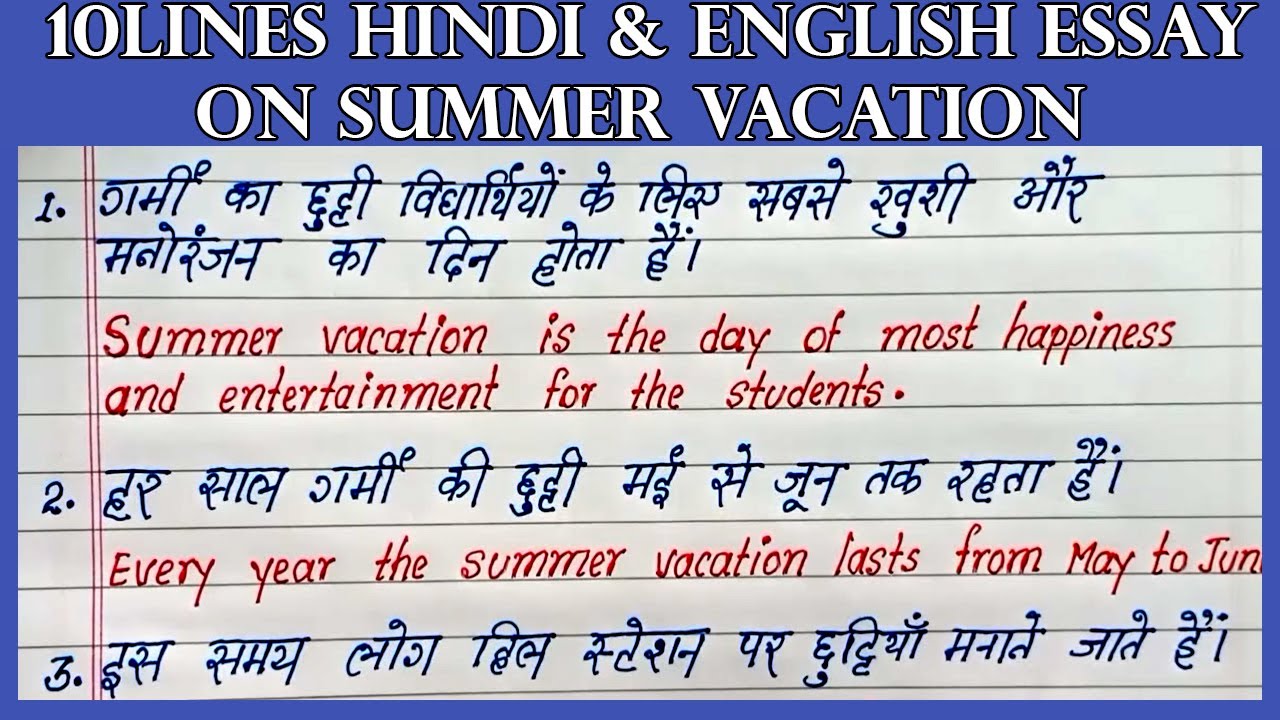 10LINES HINDI & ENGLISH ESSAY
ON SUMMER VACATION
1. गर्मी का छुट्टी विद्यार्थियों के लिए सबसे खुशी और
मनोरंजन का दिन होता हैं।
Summer vacation is the day of most happiness
and entertainment for the students.
2. हर साल गर्मी की छुट्टी मई से जून तक रहता हैं।
Every year the summer vacation lasts from May to Jun
3. इस समय लोग हिल स्टेशन पर छुट्टियाँ मनाते जाते हैं।